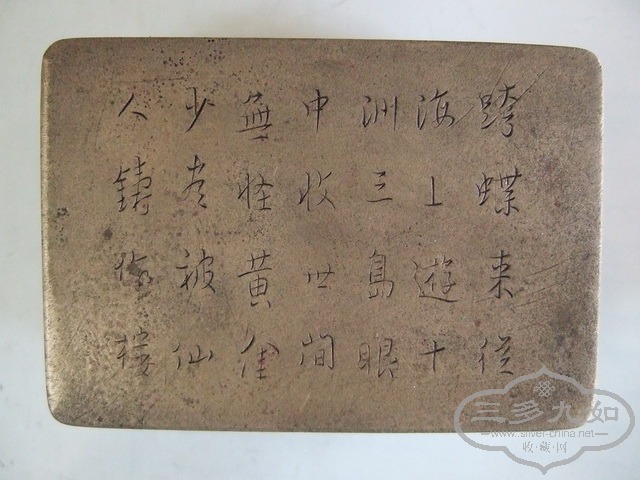 跨蝶来從
海上遊十
洲三島眼
中收世間
無怪黄金
少尽被仙
人鑄樓
三多九如
www.silver-china.net
收·藏·网